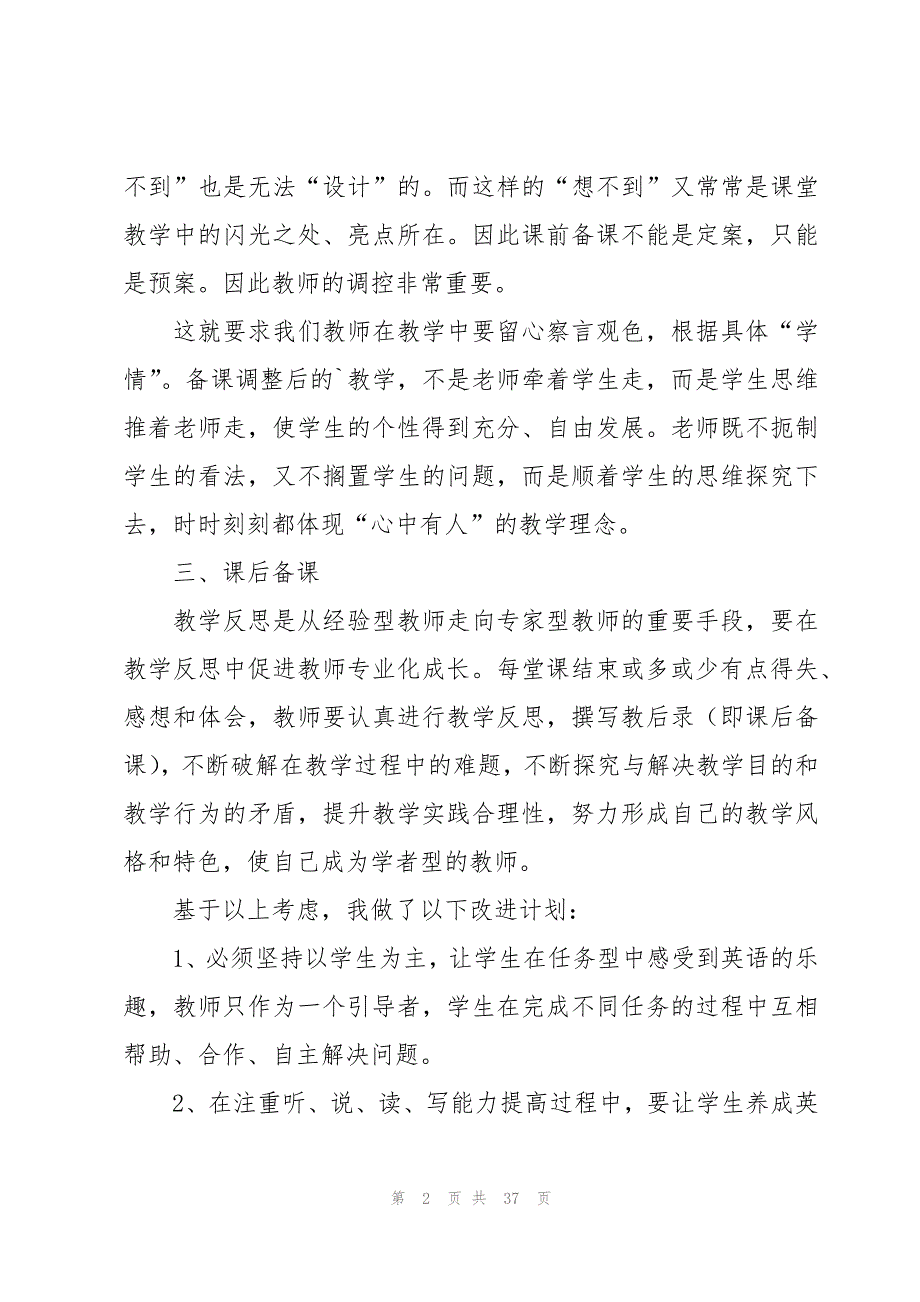 不到”也是无法“设计”的。而这样的“想不到”又常常是课堂
教学中的闪光之处、亮点所在。因此课前备课不能是定案，只能
是预案。因此教师的调控非常重要。
这就要求我们教师在教学中要留心察言观色，根据具体“学
情”。备课调整后的`教学，不是老师牵着学生走，而是学生思维
推着老师走，使学生的个性得到充分、自由发展。老师既不扼制
学生的看法，又不搁置学生的问题，而是顺着学生的思维探究下
去，时时刻刻都体现“心中有人”的教学理念。
三、课后备课
教学反思是从经验型教师走向专家型教师的重要手段，要在
教学反思中促进教师专业化成长。每堂课结束或多或少有点得失、
感想和体会，教师要认真进行教学反思，撰写教后录（即课后备
课），不断破解在教学过程中的难题，不断探究与解决教学目的和
教学行为的矛盾，提升教学实践合理性，努力形成自己的教学风
格和特色，使自己成为学者型的教师。
基于以上考虑，我做了以下改进计划：
1、必须坚持以学生为主，让学生在任务型中感受到英语的乐
趣，教师只作为一个引导者，学生在完成不同任务的过程中互相
帮助、合作、自主解决问题。
2、在注重听、说、读、写能力提高过程中，要让学生养成英
第 2 页 共 37 页